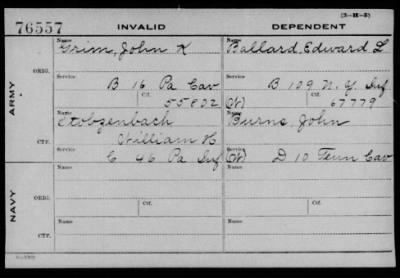 (3-H-5)
76557 INVALID DEPENDENT
ARMY
ORIG.
Name Grim, John K Name Ballard, Edward L
Service B 16 Pa Cav Service B 109 N.Y. Inf
Ctf. 55802 Ctf. (W) 67779
CTF.
Name Stobzenbach Name Burns, John
William H
Service C 46 Pa Inf Service (W) D 10 Tenn Cav
NAVY
ORIG.
Name Name
Ctf. Ctf.
CTF.
Name Name